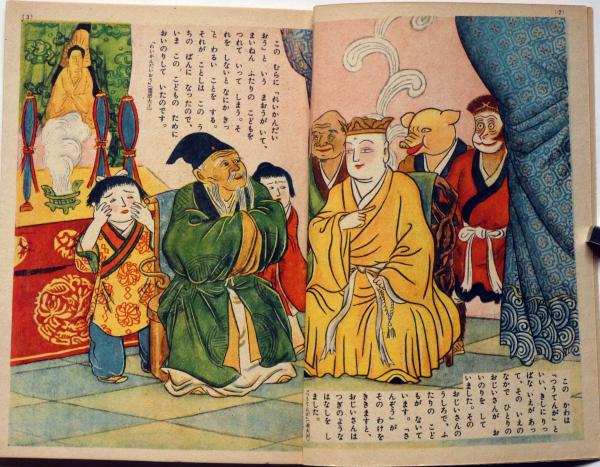 (2)
この かわは
「つうてんが」と
いい、きしにりっ
ぱな いえが あっ
て、その いえの
なかで ひとりの
おじいさんが お
いのりを して
いました。その
おじいさんの
うしろで、ふ
たりの こど
もが ないて
います。「さ
んぞう」が
その わけを
ききますと、
おじいさんは
つぎのような
はなしを し
ました。
(3)
この むらに「れいかんだい
おう」と いう まおうが いて、
まいねん ふたりの こどもを
つれて いって しまう。そ
れを しないと なにか きっ
と わるい ことを する。
それが ことしは この う
ちの ばんに なったので、
いま この、こどもの ために
おいのりして いたのです。
「れいかんだいおう」(霊感大王)